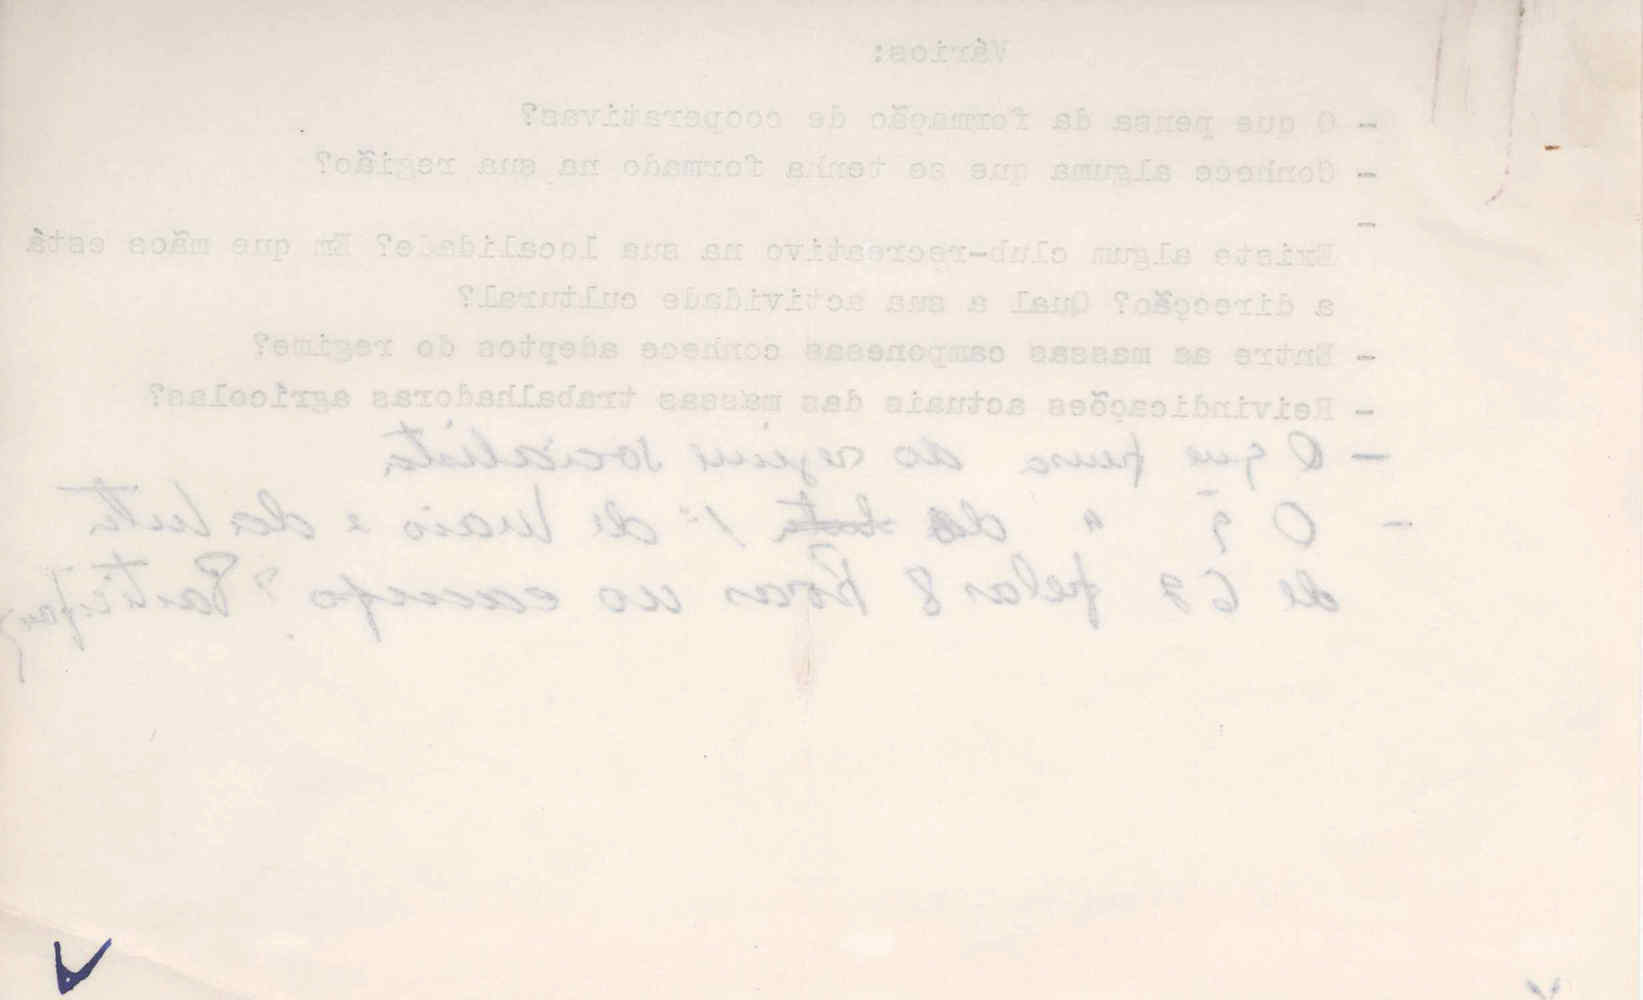 Vários:
- O que pensa da formação de cooperativas?
- Conhece alguma que se tenha formado na sua região?
-
Existe algum club-recreativo na sua localidade? Em que mãos está
a direcção? Qual a sua actividade cultural?
- Entre as massas camponesas conhece adeptos do regime?
- Reivindicações actuais das massas trabalhadoras agrícolas?
- O que pensa do regime socialista
- O q̄ " da luta 1º de Maio e da luta
de 62 pelas 8 horas no campo? Participou